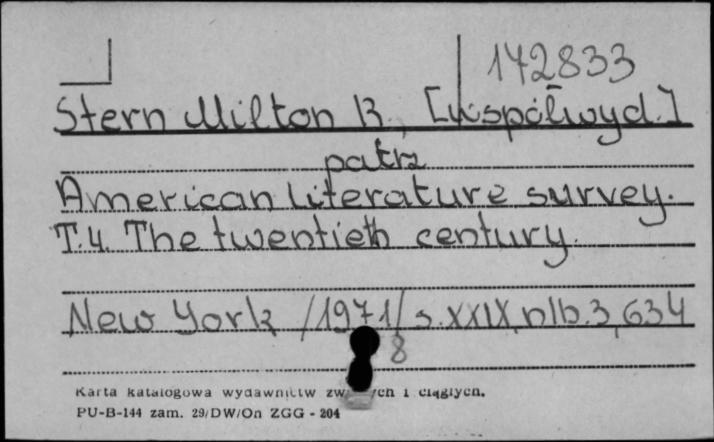 142833
Stern Milton R., [Współwyd.]
patrz
American literature survey.
T.4. The twentieth century.
New York /1971/ s. XXIX, nlb. 3, 634
8
Karta katalogowa wydawnictw i ciągłych.
PU-B-144 zam. 29/DW/On ZGG - 204